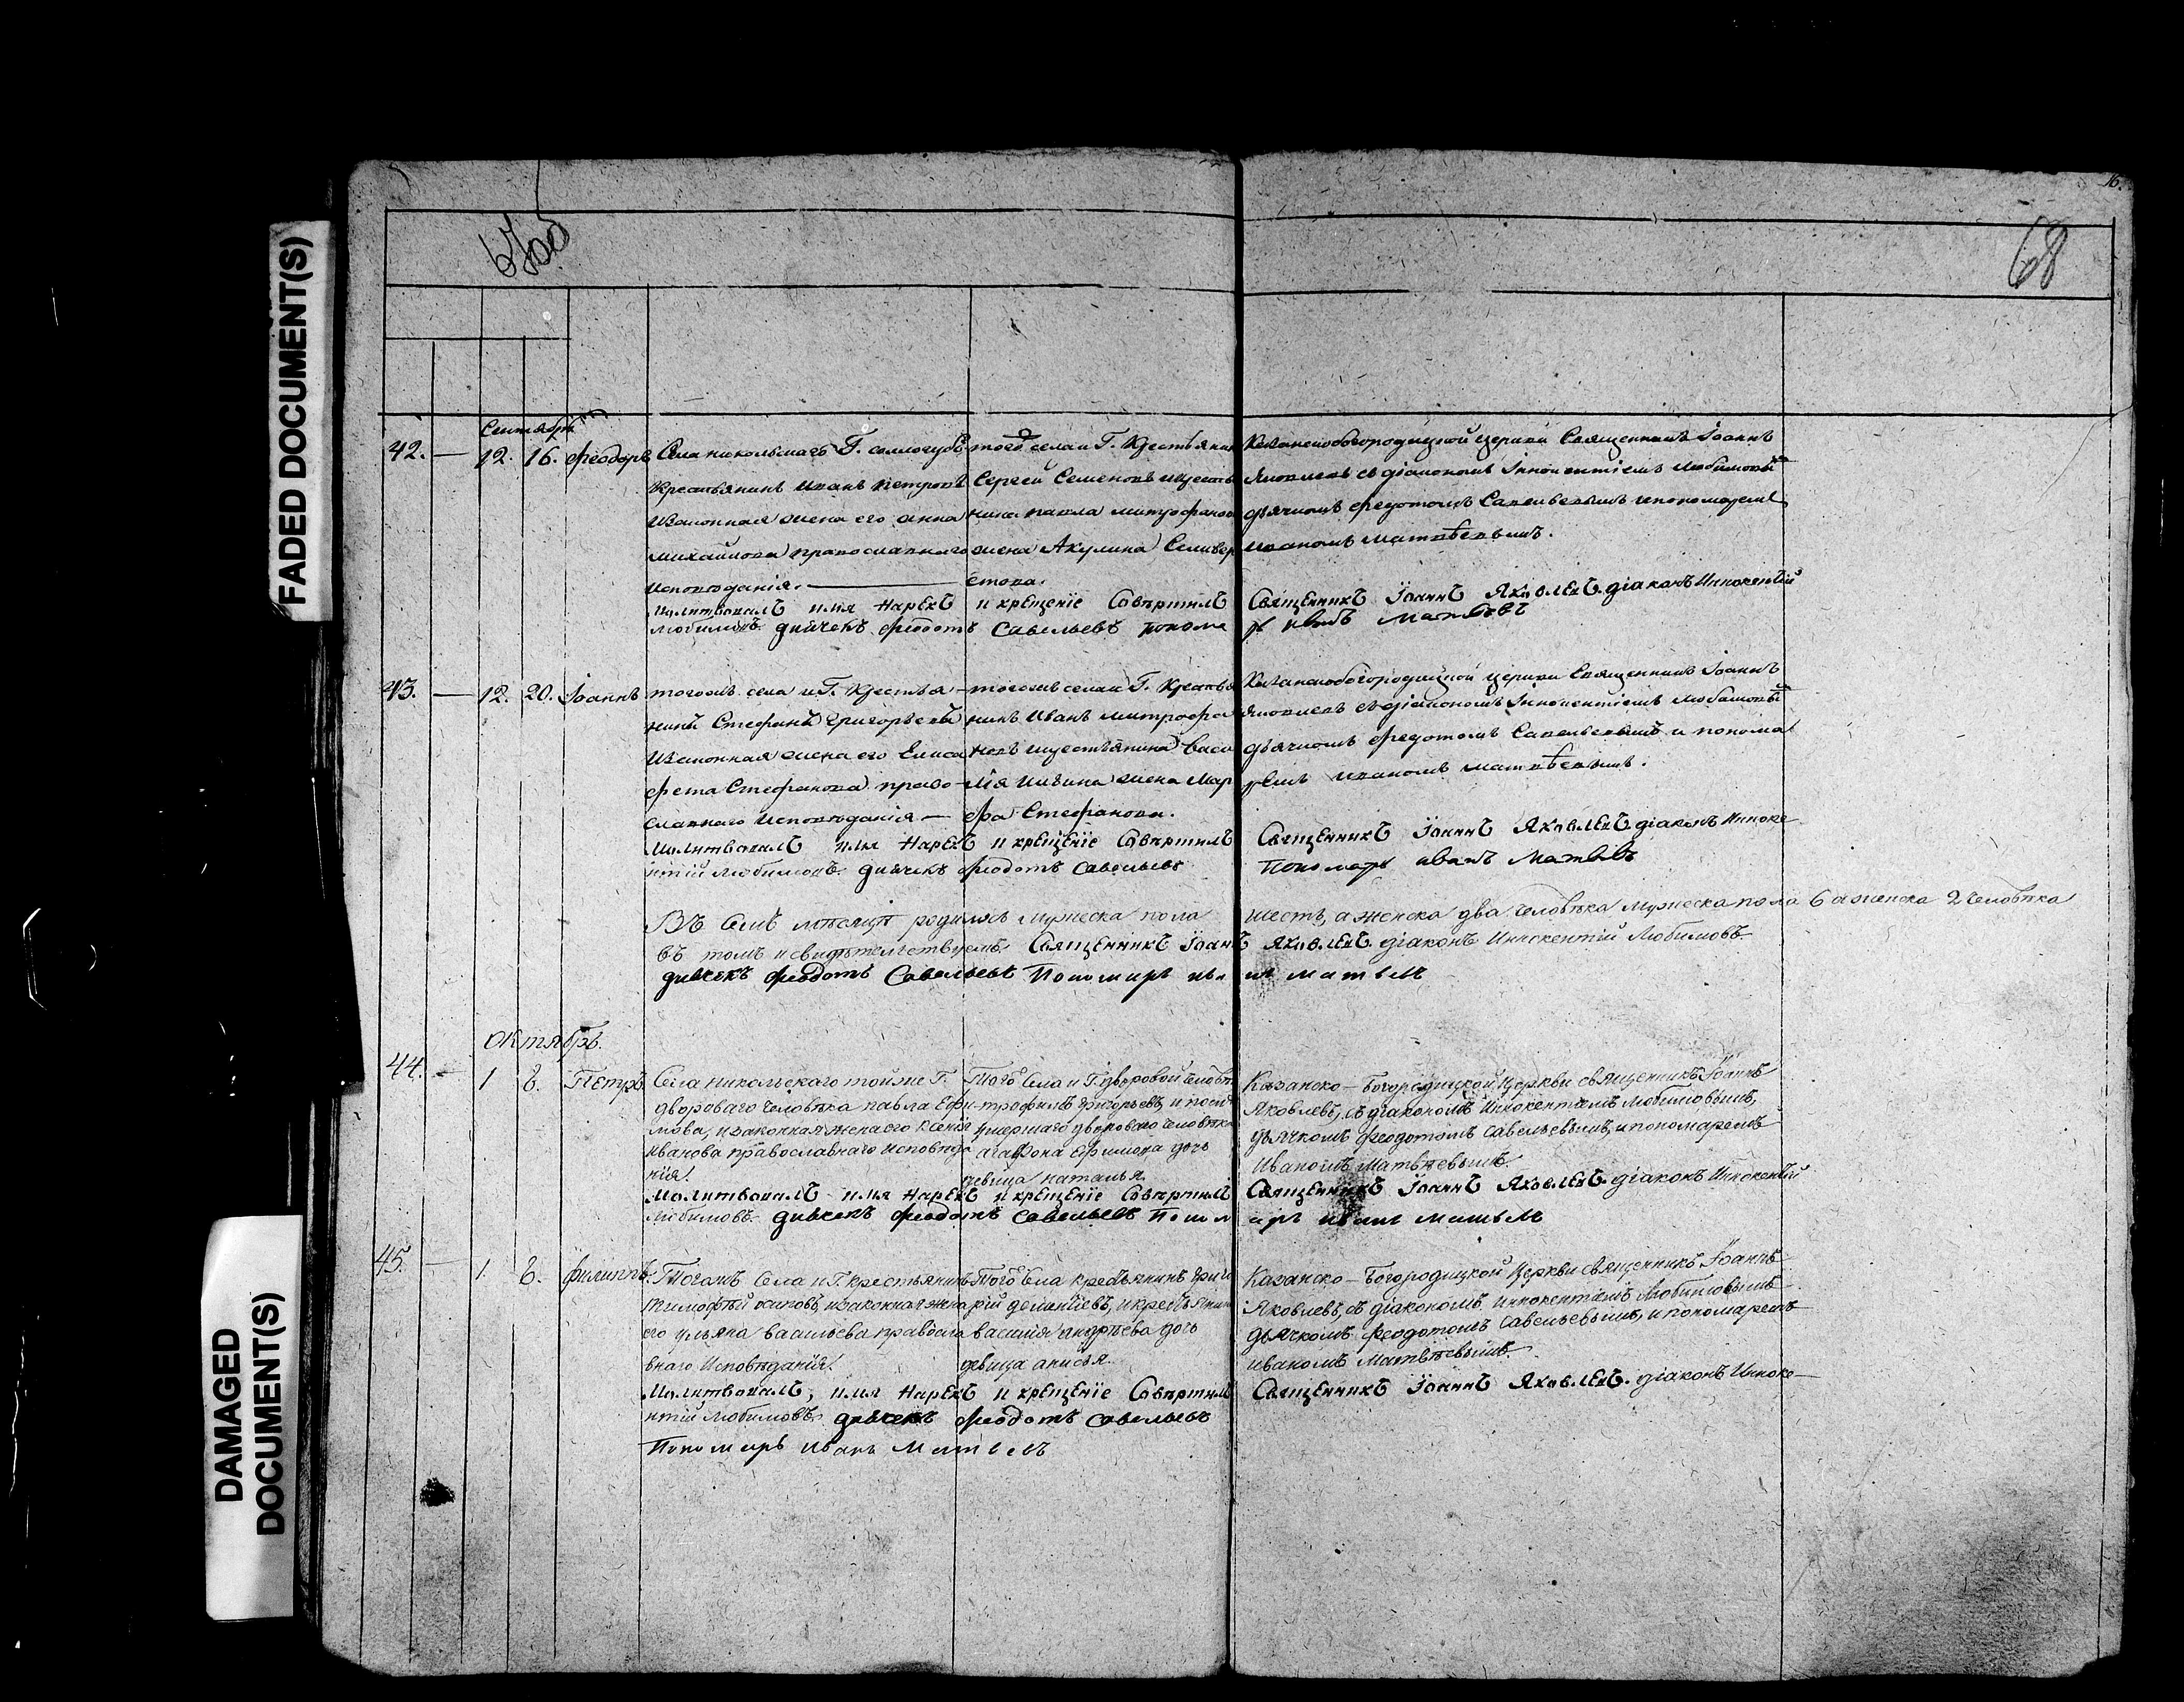 FADED DOCUMENT(S)
DAMAGED DOCUMENT(S)
67об
16.
68
Сентябрь
42. — 12. 16. Феодоръ
Села Г.
Крестьянинъ Иванъ Петровъ
законная жена его Анна
Михайлова православнаго
исповѣданія.
того села и Г. Крестьянин
Сергей Семеновъ и крестья
нина Павла Митрофанов
жена Акулина Селивер
стова.
Казанскобогородицкой церкви Священникъ Іоаннъ
Яковлевъ съ діакономъ Іннокентіемъ Любимовы
дьячкомъ Федотомъ Савельевымъ и пономаремъ
Иваномъ Матвѣевымъ.
Молитвовалъ имя нарекъ и крещенїе совершилъ Священникъ Їоаннъ Яковлевъ. діаконъ Иннокентій
Любимовъ. дьячекъ Феодотъ Савельевъ понома рь Иванъ Матвѣевъ
43. — 12. 20. Іоаннъ
тогожъ села и Г. Крестья-
нинъ Стефанъ Григорьевъ
Изаконная жена его Елиса
фета Стефанова право-
славнаго исповѣданія —
тогожъ села и Г. Крестья
нинъ Иванъ Митрофа
новъ и крестьянина Васи
лія жена Мар
фа Стефанова.
Казанскобогородицкой церкви Священникъ Іоаннъ
Яковлевъ съ діакономъ Іннокентіемъ Любимовы
дьячкомъ Федотомъ Савельевымъ и понома
ремъ Иваномъ Матвѣевымъ.
Молитвовалъ имя нарекъ и крещенїе совершилъ Священникъ Їоаннъ Яковлевъ діаконъ Инноке-
нтій Любимовъ. дьячекъ Феодотъ Савельевъ Пономарь Иванъ Матвѣевъ
Въ семъ мѣсяцѣ родилось мужеска пола шесть, а женска два человѣка мужеска пола 6 а женска 2 человѣка
въ томъ и свидѣтельствуемъ. Священникъ Їоаннъ Яковлевъ. діаконъ Иннокентій Любимовъ.
дьячекъ Феодотъ Савельевъ Пономарь Иванъ Матвѣевъ
Октябрь.
44. — 1 6. Петръ.
Села Никольскаго тойже Г.
двороваго человѣка Павла Ефи-
мова, и законная жена его Ксенія
Иванова православнаго исповѣда
нія.
Того села и Г. дворовой человѣк
трофимъ Григорьевъ, и
умершаго двороваго человѣка
агафона Ефимова дочь
девица Наталья.
Казанско-Богородицкой Церкви священникъ Іоаннъ
Яковлевъ, съ діакономъ Иннокентіемъ Любимовымъ,
дьячкомъ Феодотомъ Савельевымъ, и пономаремъ
Иваномъ Матвѣевымъ.
Молитвовалъ имя нарекъ и крещенїе совершилъ Священникъ Їоаннъ Яковлевъ. діаконъ Иннокентій
Любимовъ. дьячекъ Феодотъ Савельевъ Поном арь Иванъ Матвѣевъ
45. — 1. 6. Филиппъ.
Тогожъ Села и Г. крестьянинъ
Тимофѣй Осиповъ, и законная жена
его Ульяна Васильева правосла
внаго Исповѣданія.
Того Села крестьянинъ Григо
рій Дементіевъ, и крестьянин
Василія Андрѣева дочь
девица анисья.
Казанско-Богородицкой Церкви священникъ Іоаннъ
Яковлевъ, съ діакономъ Иннокентіемъ Любимовымъ
дьячкомъ Феодотомъ Савельевымъ, и пономаремъ
Иваномъ Матвѣевымъ.
Молитвовалъ, имя нарекъ и крещенїе совершилъ Священникъ Їоаннъ Яковлевъ. діаконъ Инноке-
нтій Любимовъ. дьячекъ Феодотъ Савельевъ
Пономарь Иванъ Матвѣевъ